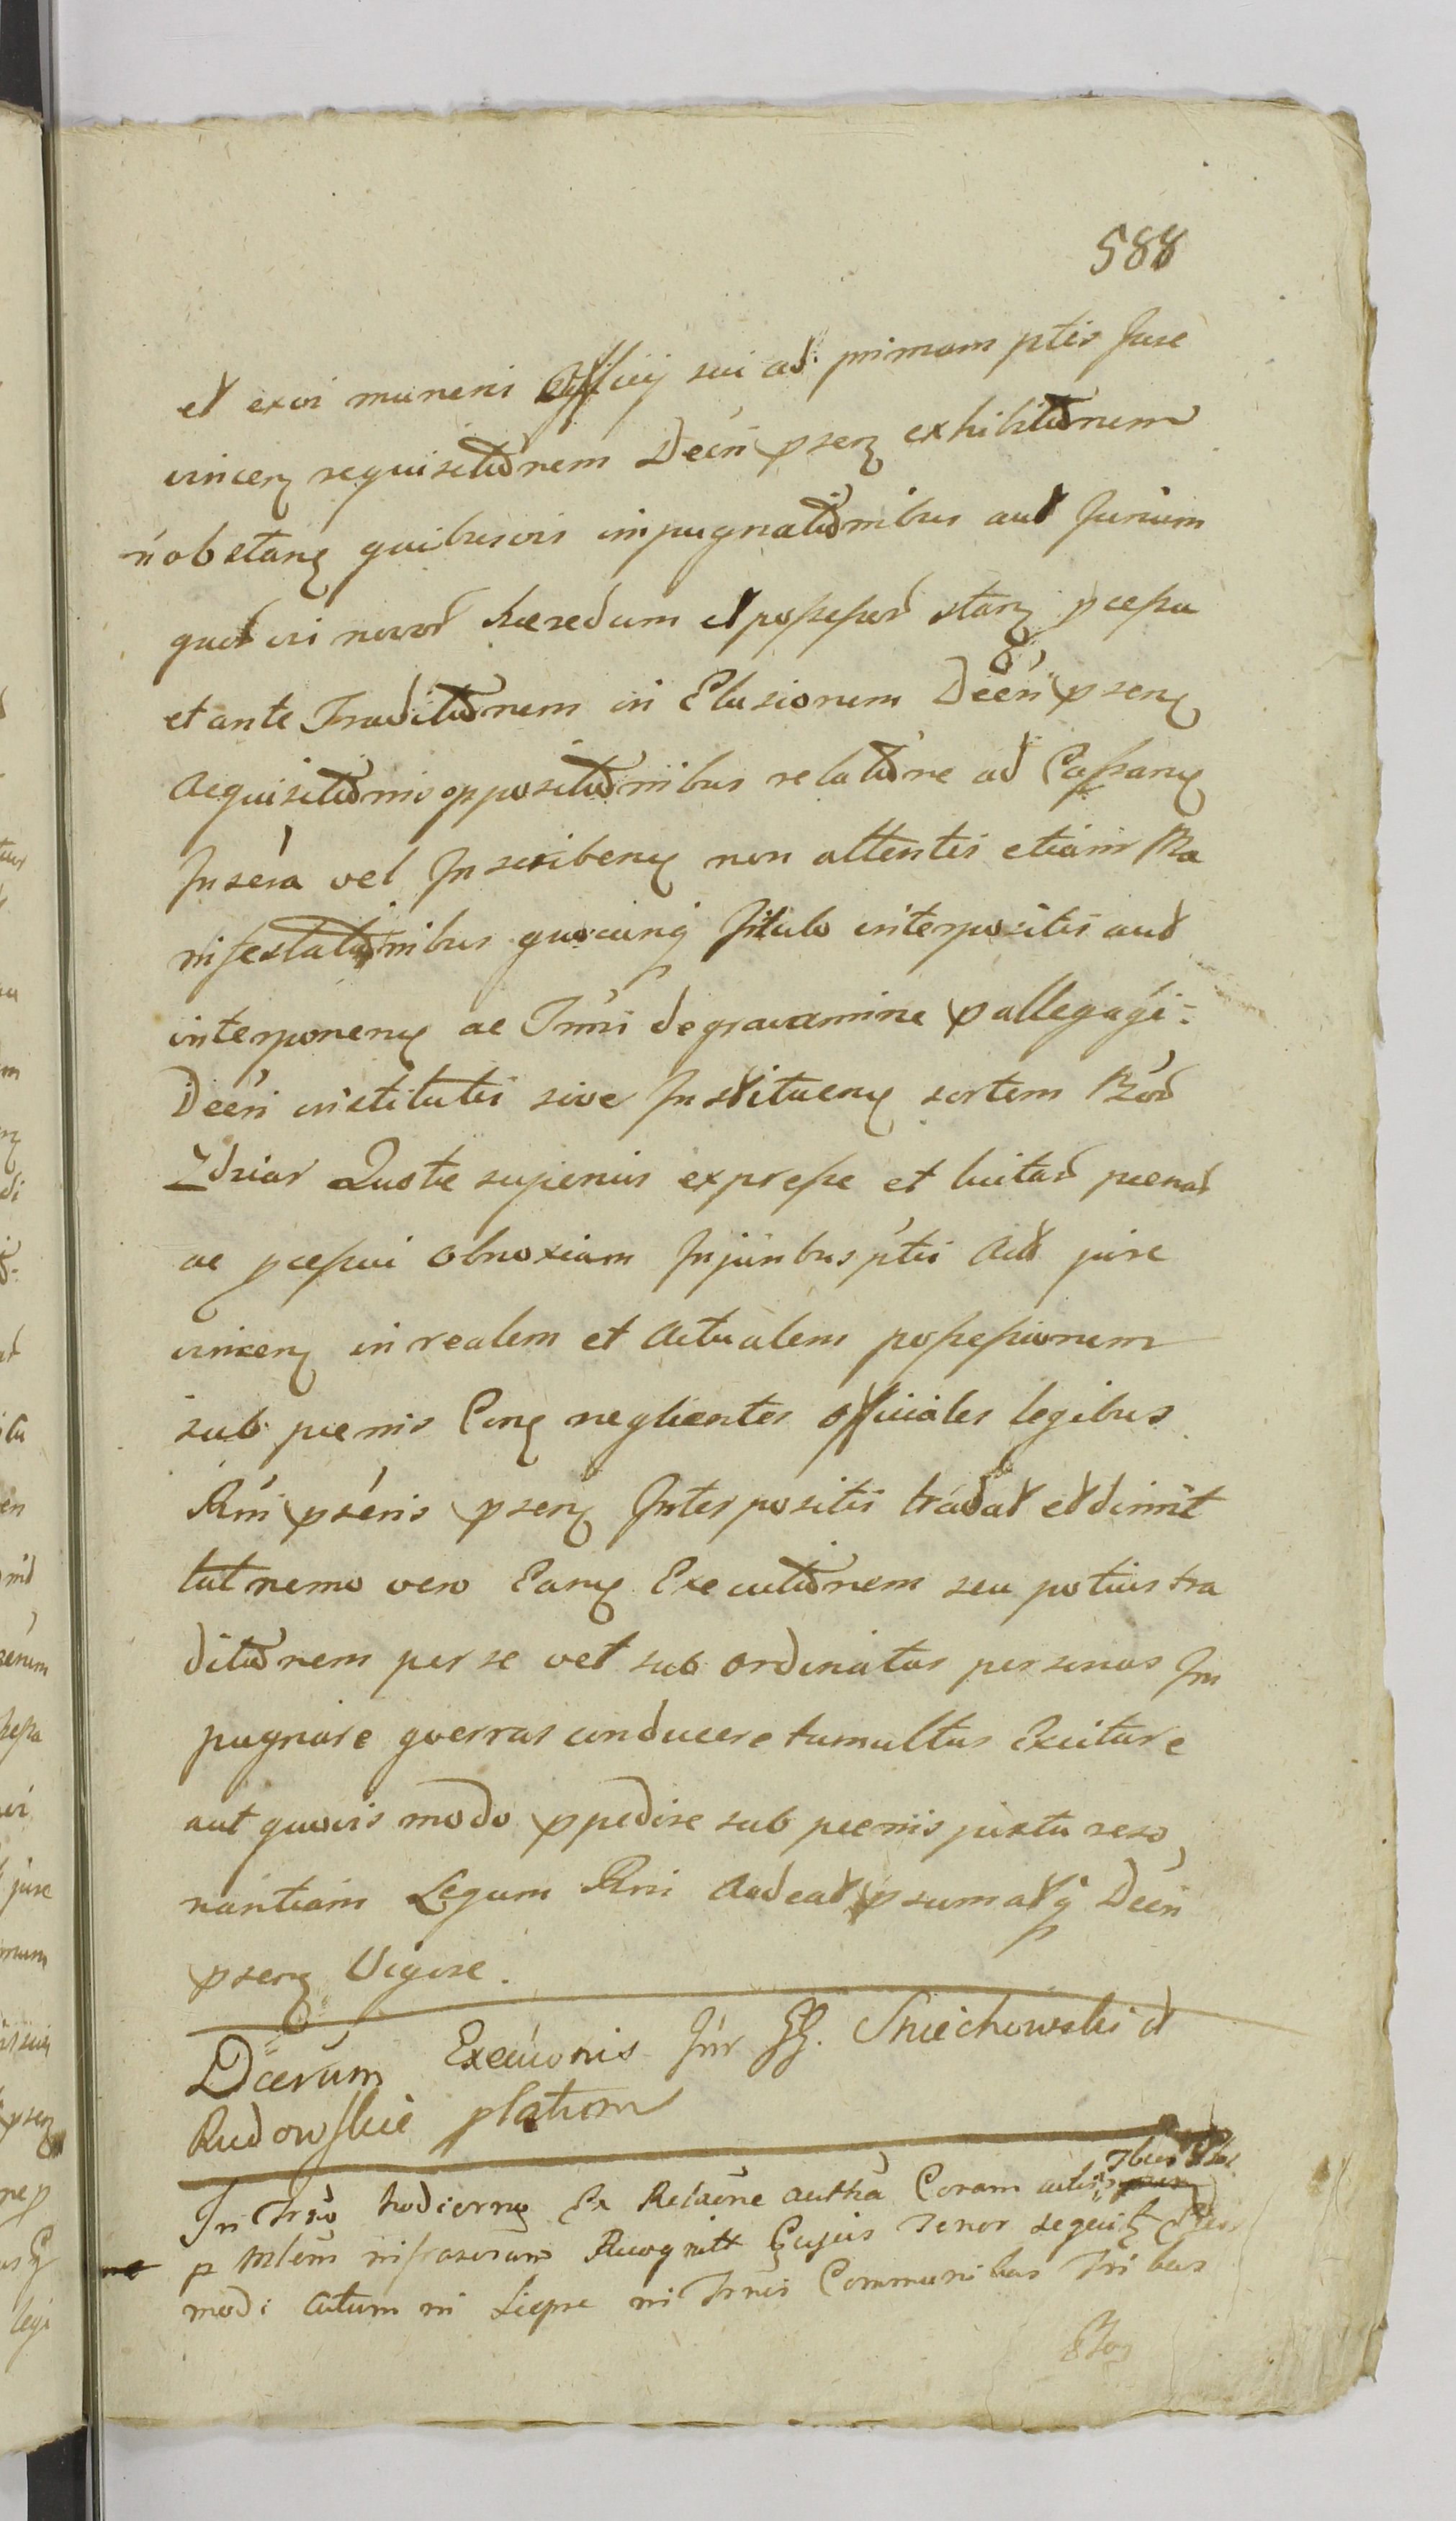 588
et exvi muneris Officij sui ad primam ptis Jure
vincen requisitionem Decri psen exhibitionem
n obstan quibusvis impugnationibus aut Jurium
quot vi novor hæredum et possessor stan pcessu
et ante Traditionem in Elusionem Decri psen
Acquisitionis oppositionibus relatione ad Cassan
Inscra vel Inscriben non attentis etiam Ma
nifestationibus quocunq titulo interpositis aut
interponen ac Tmi de gravamine p allegagi:
Decri institutis sive Instituen sortem Bor
Zdziar Quotæ superius expresse et luitar pænar
ac pcessui obnoxiam Injunbus ptis Act jure
vincen in realem et Actualem possessionem
sub pænis Con negligentes officiales legibus
Rni psenis psen Interpositis tradat et dimit
tat nemo vero Ean Executionem seu potius tra
ditionem per se vel sub ordinatas personas Im
pugnare guerras conducere tumultus Excitare
aut quovis modo ppedire sub pænis juxta reso
nantiam Legum Rni Audeat psumatq Decri
psen Vigore.
Dcerum Execuonis Inr GG. Sniechowski et
Rudowskie platum
In Trno hodierno Ex Relaone autha Coram actis
p Mlem infrascrum Recognitt Cujus Tenor sequit
modi Actum in Liepre in Trnis Communibus Tri bus
Bon